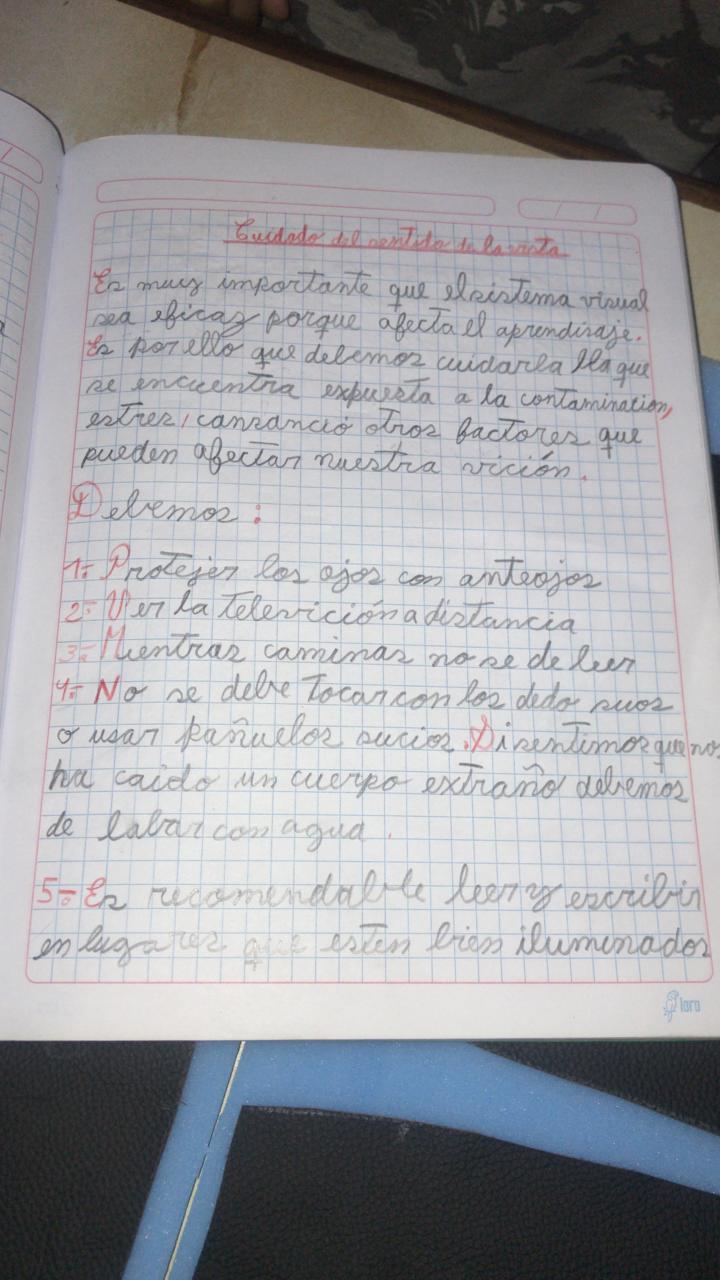 Cuidado del sentido de la vista
Es muy importante que el sistema visual
sea eficaz porque afecta el aprendisaje.
Es por ello que debemos cuidarla lla que
se encuentra expuesta a la contaminacion,
estres, cansanció otros factores que
pueden afectar nuestra vición.
Debemos:
1- Protejer los ojos con anteojos
2- Ver la televición a distancia
3- Mientras caminas no se de leer
4- No se debe tocar con los dedo suos
o usar pañuelos sucios. Si sentimos que nos
ha caido un cuerpo extraño debemos
de labar con agua.
5- Es recomendable leer y escribir
en lugares que esten bien iluminados
loro